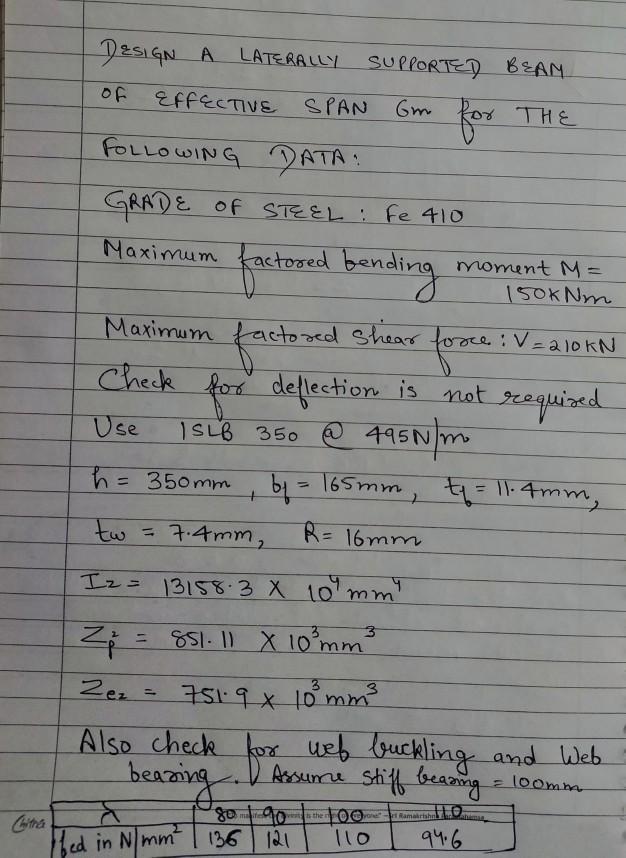 DESIGN A LATERALLY SUPPORTED BEAM
OF EFFECTIVE SPAN 6m for THE
FOLLOWING DATA:
GRADE OF STEEL: Fe 410
Maximum factored bending moment M =
150kNm
Maximum factored shear force: V=210KN
Check for deflection is not required
Use ISLB 350 @ 495N/m
h = 350mm, bf = 165mm, tf = 11.4mm,
tw = 7.4mm, R= 16mm
Iz = 13158.3 X 10⁴ mm⁴
Zpz = 851.11 X 10³ mm³
Zez = 751.9 x 10³ mm³
Also check for web buckling and Web
bearing. Assume stiff bearing = 100mm
λ 80 90 100 110
fcd in N/mm² 136 121 110 94.6
Chitra